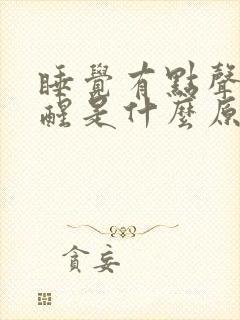 睡覺有點聲
醒是什麼原
貪妄